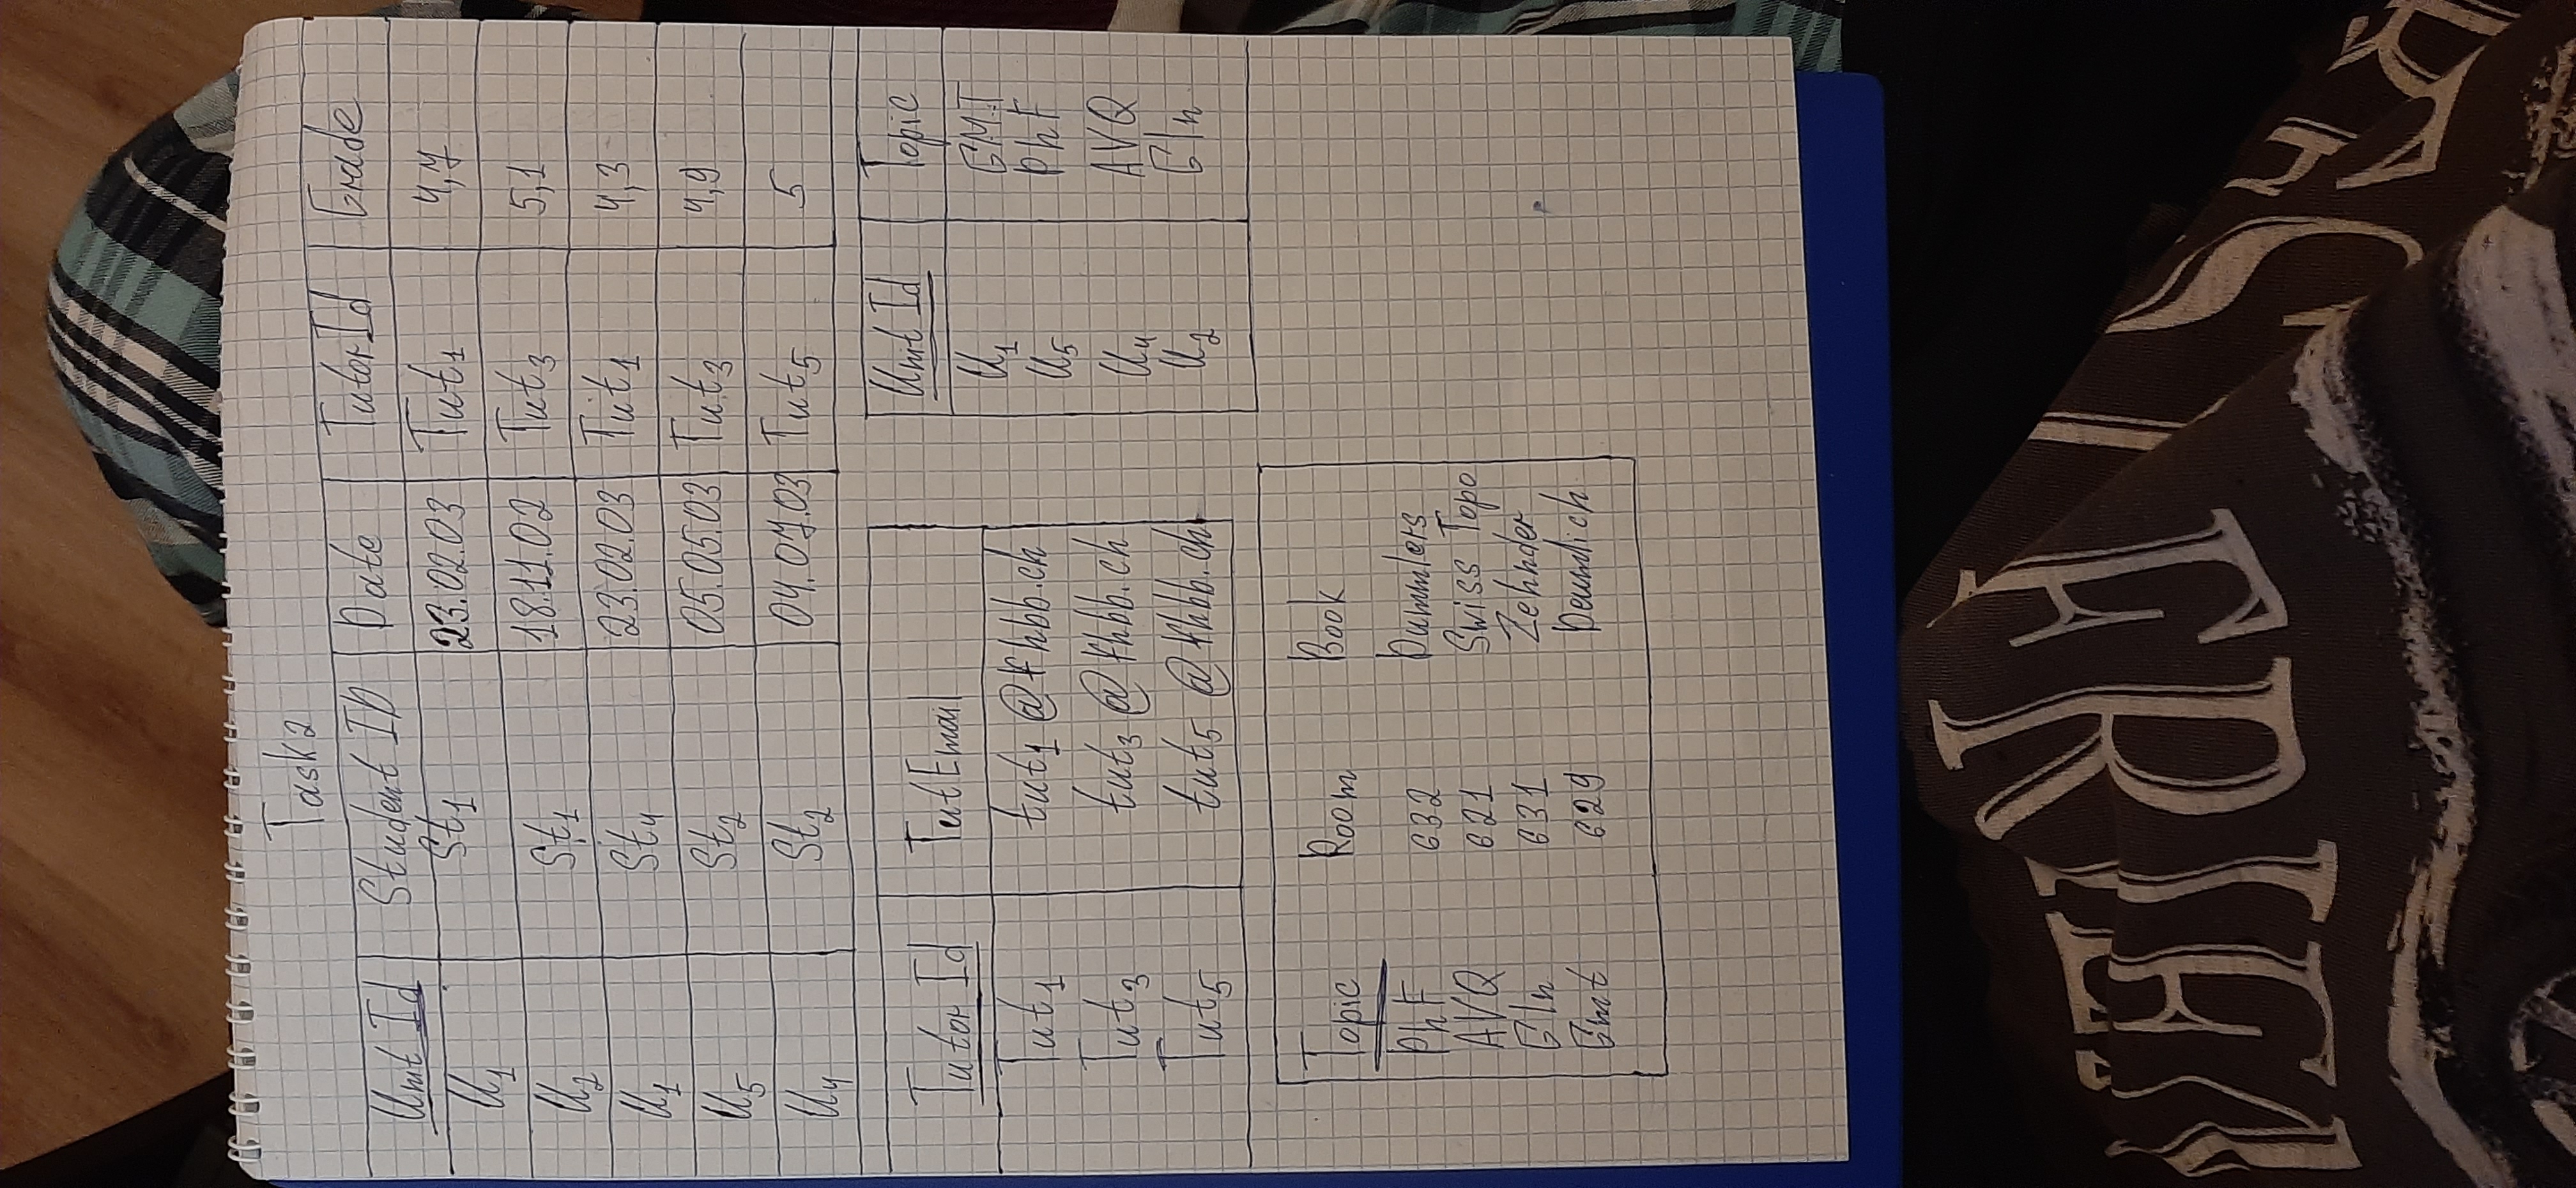 Task 2
Unit Id Student ID Date Tutor Id Grade
U1 St1 23.02.03 Tut1 4,7
U2 St1 18.11.02 Tut3 5,1
U1 St4 23.02.03 Tut1 4,3
U5 St2 05.05.03 Tut3 4,9
U4 St2 04.07.03 Tut5 5
Tutor Id TutEmail
Tut1 tut1@fhbb.ch
Tut3 tut3@fhbb.ch
Tut5 tut5@fhbb.ch
Unit Id Topic
U1 GMT
U5 PhF
U4 AVQ
U2 GIn
Topic Room Book
PhF 632 Dummlers
AVQ 621 Swiss Topo
GIn 631 Zehnder
Gmt 629 Deumlich